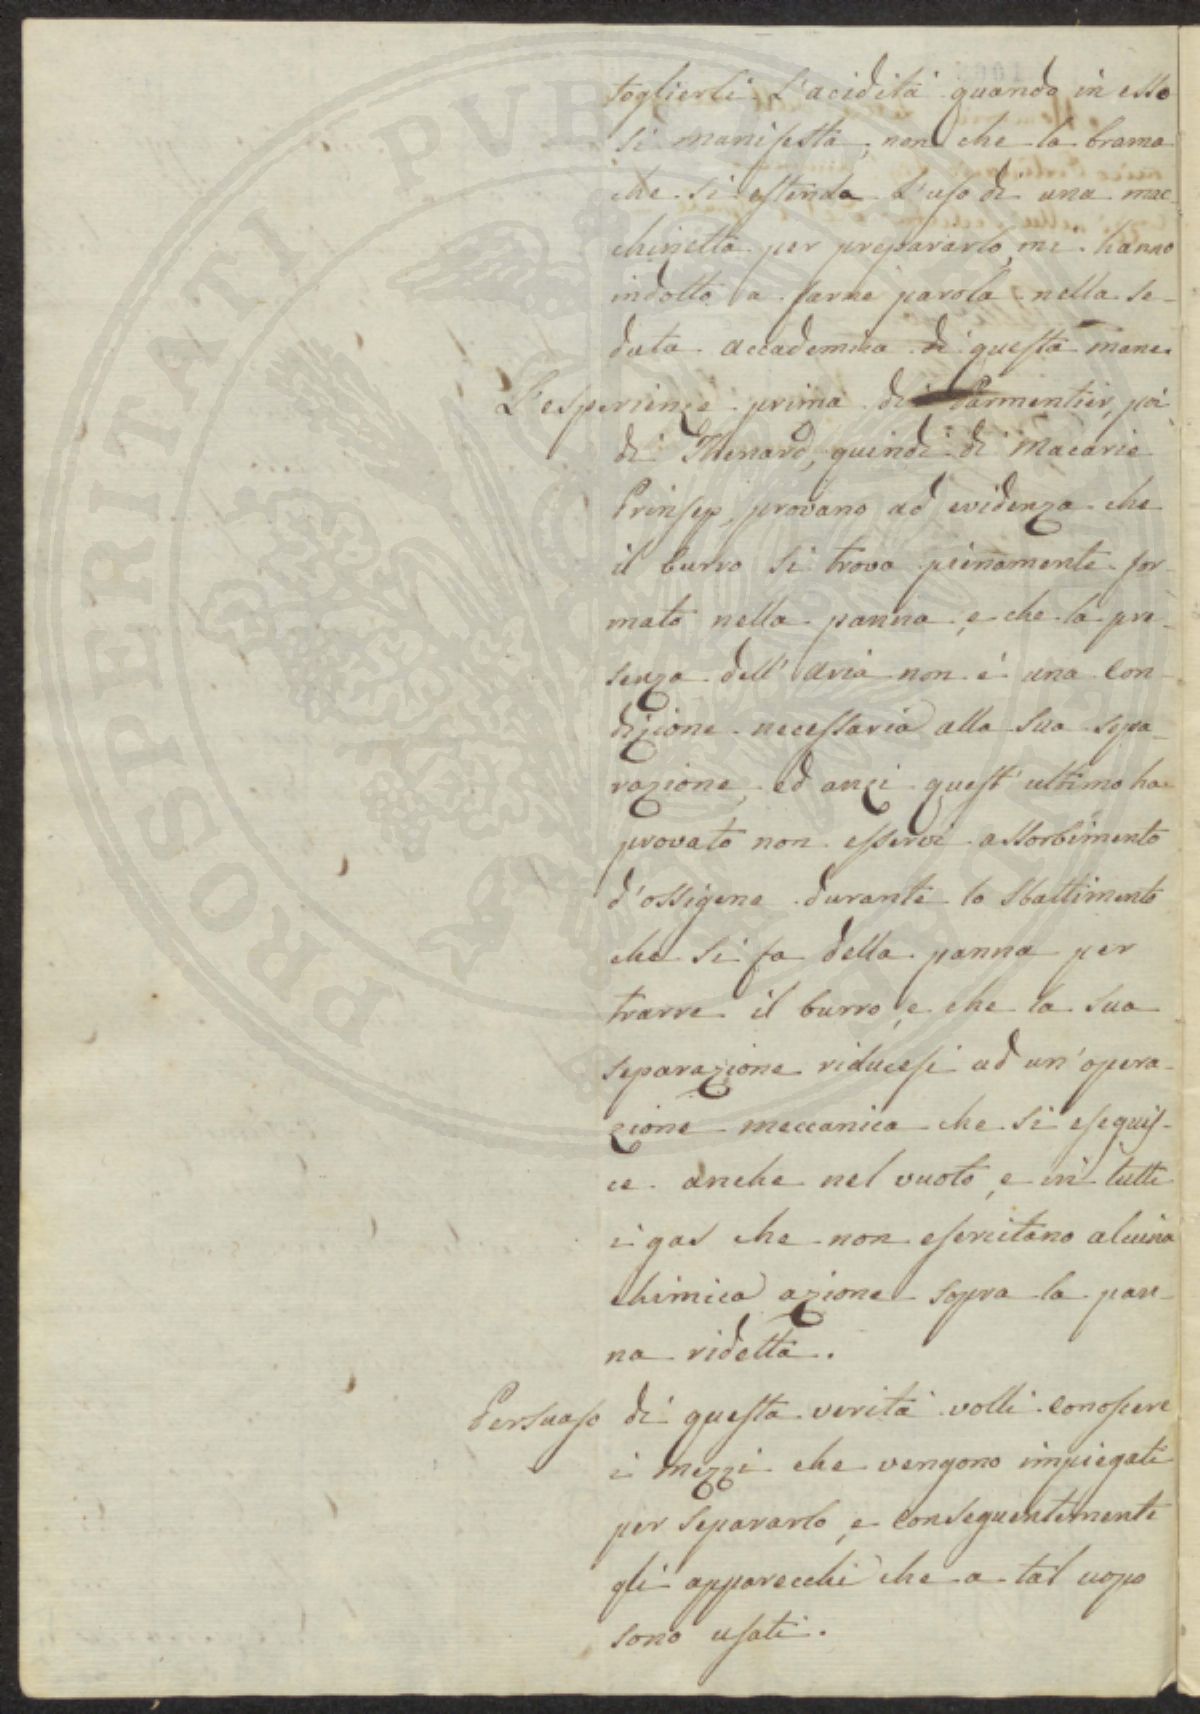 toglierli l'acidità quando in esso
si manifesta, non che la brama
che si estenda l'uso di una mac-
chinetta per prepararlo, mi hanno
indotto a farne parola nella se-
duta accademica di questa mane.
L'esperienze prima di Parmentier, poi
di Thenard, quindi di Macarie
Prinsep, provano ad evidenza che
il burro si trova pienamente for-
mato nella panna, e che la pre-
senza dell'aria non è una con-
dizione necessaria alla sua sepa-
razione, ed anzi quest'ultimo ha
provato non esservi assorbimento
d'ossigene durante lo sbattimento
che si fa della panna per
trarre il burro, e che la sua
separazione riducesi ad un'opera-
zione meccanica che si eseguis-
ce anche nel vuoto, e in tutti
i gas che non esercitano alcuna
chimica azione sopra la pan-
na ridetta.
Persuaso di questa verità volli conoscere
i mezzi che vengono impiegati
per separarlo, e conseguentemente
gli apparecchi che a tal uopo
sono usati.
PROSPERITATI PVBLICAE